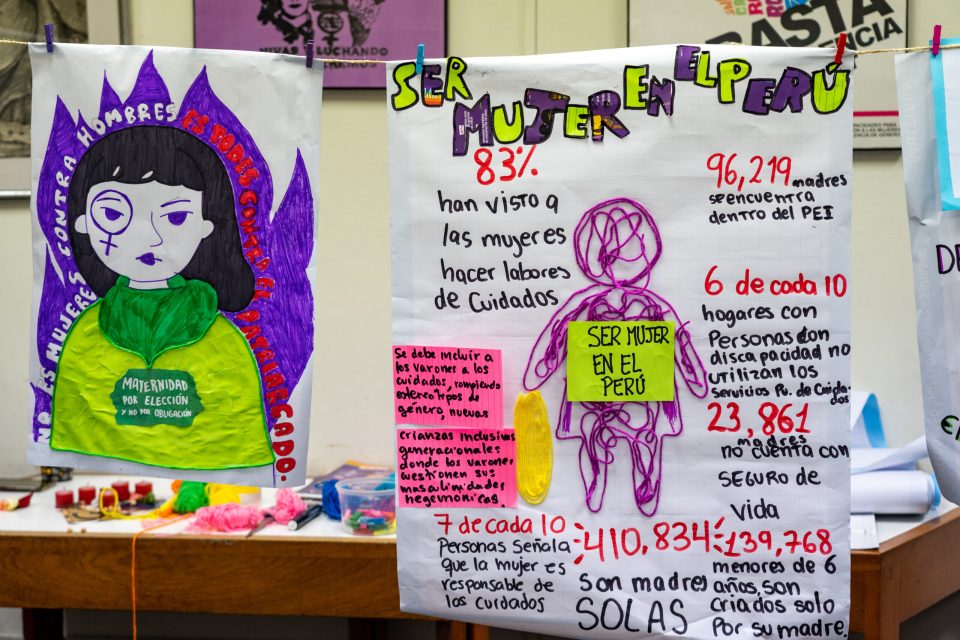 VIVAS Y LUCHANDO
BASTA
NO ES MUJERES CONTRA HOMBRES ES TODES CONTRA EL PATRIARCADO.
MATERNIDAD
POR ELECCIÓN
Y NO POR OBLIGACIÓN
SER MUJER EN EL PERÚ
83%
han visto a
las mujeres
hacer labores
de Cuidados
96,219 madres
se encuentra
dentro del PEI
6 de cada 10
hogares con
Personas con
discapacidad no
utilizan los
Servicios Pu. de Cuidados
23,861
madres
no cuenta con
SEGURO de
vida
SER MUJER
EN EL
PERÚ
Se debe incluir a
los varones a los
cuidados, rompiendo
estereotipos de
género, nuevas
crianzas inclusivas
generacionales
donde los varones
cuestionen sus
masculinidades
hegemónicas.
7 de cada 10
Personas Señala
que la mujer es
responsable de
los cuidados
410,834
son madres
SOLAS
139,768
menores de 6
años, son
criados solo
Por su madre